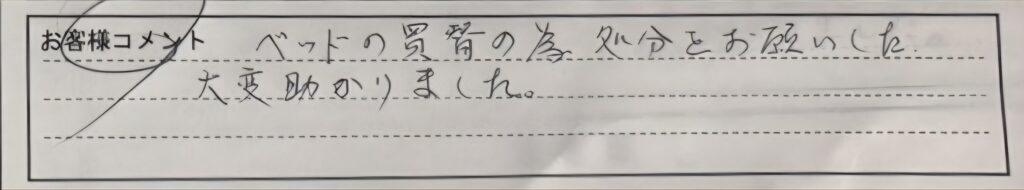 お客様コメント ベッドの買替の為、処分をお願いした.
大変助かりました。